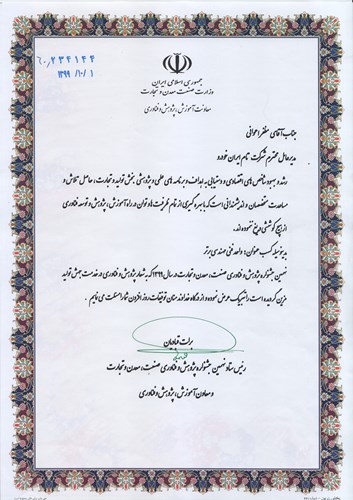 ۶۰/۲۳۴۱۴۴
۱۳۹۹/۱۰/۱
جمهوری اسلامی ایران
وزارت صنعت معدن و تجارت
معاونت آموزش، پژوهش و فناوری
جناب آقای مظفر اعوانی
مدیرعامل محترم شرکت تام ایران خودرو
رشد و بهبود شاخص های اقتصادی و دستیابی به اهداف و برنامه های علمی و پژوهشی بخش تولید و تجارت، حاصل تلاش و
مساعدت متخصصان و اندیشمندانی است که با بهره گیری از تمام ظرفیت ها و توان در راه آموزش، پژوهش و توسعه فناوری
از هیچ کوششی دریغ ننموده اند.
بدینوسیله کسب عنوان: واحد فنی مهندسی برتر
نهمین جشنواره پژوهش و فناوری صنعت، معدن و تجارت در سال ۱۳۹۹ که به شعار پژوهش و فناوری در خدمت جهش تولید
مزین گردیده است را تبریک عرض نموده و از درگاه خداوند منان توفیقات روز افزون شما را مسئلت می نمایم.
برات قبادیان
رئیس ستاد نهمین جشنواره پژوهش و فناوری صنعت، معدن و تجارت
و معاون آموزش، پژوهش و فناوری